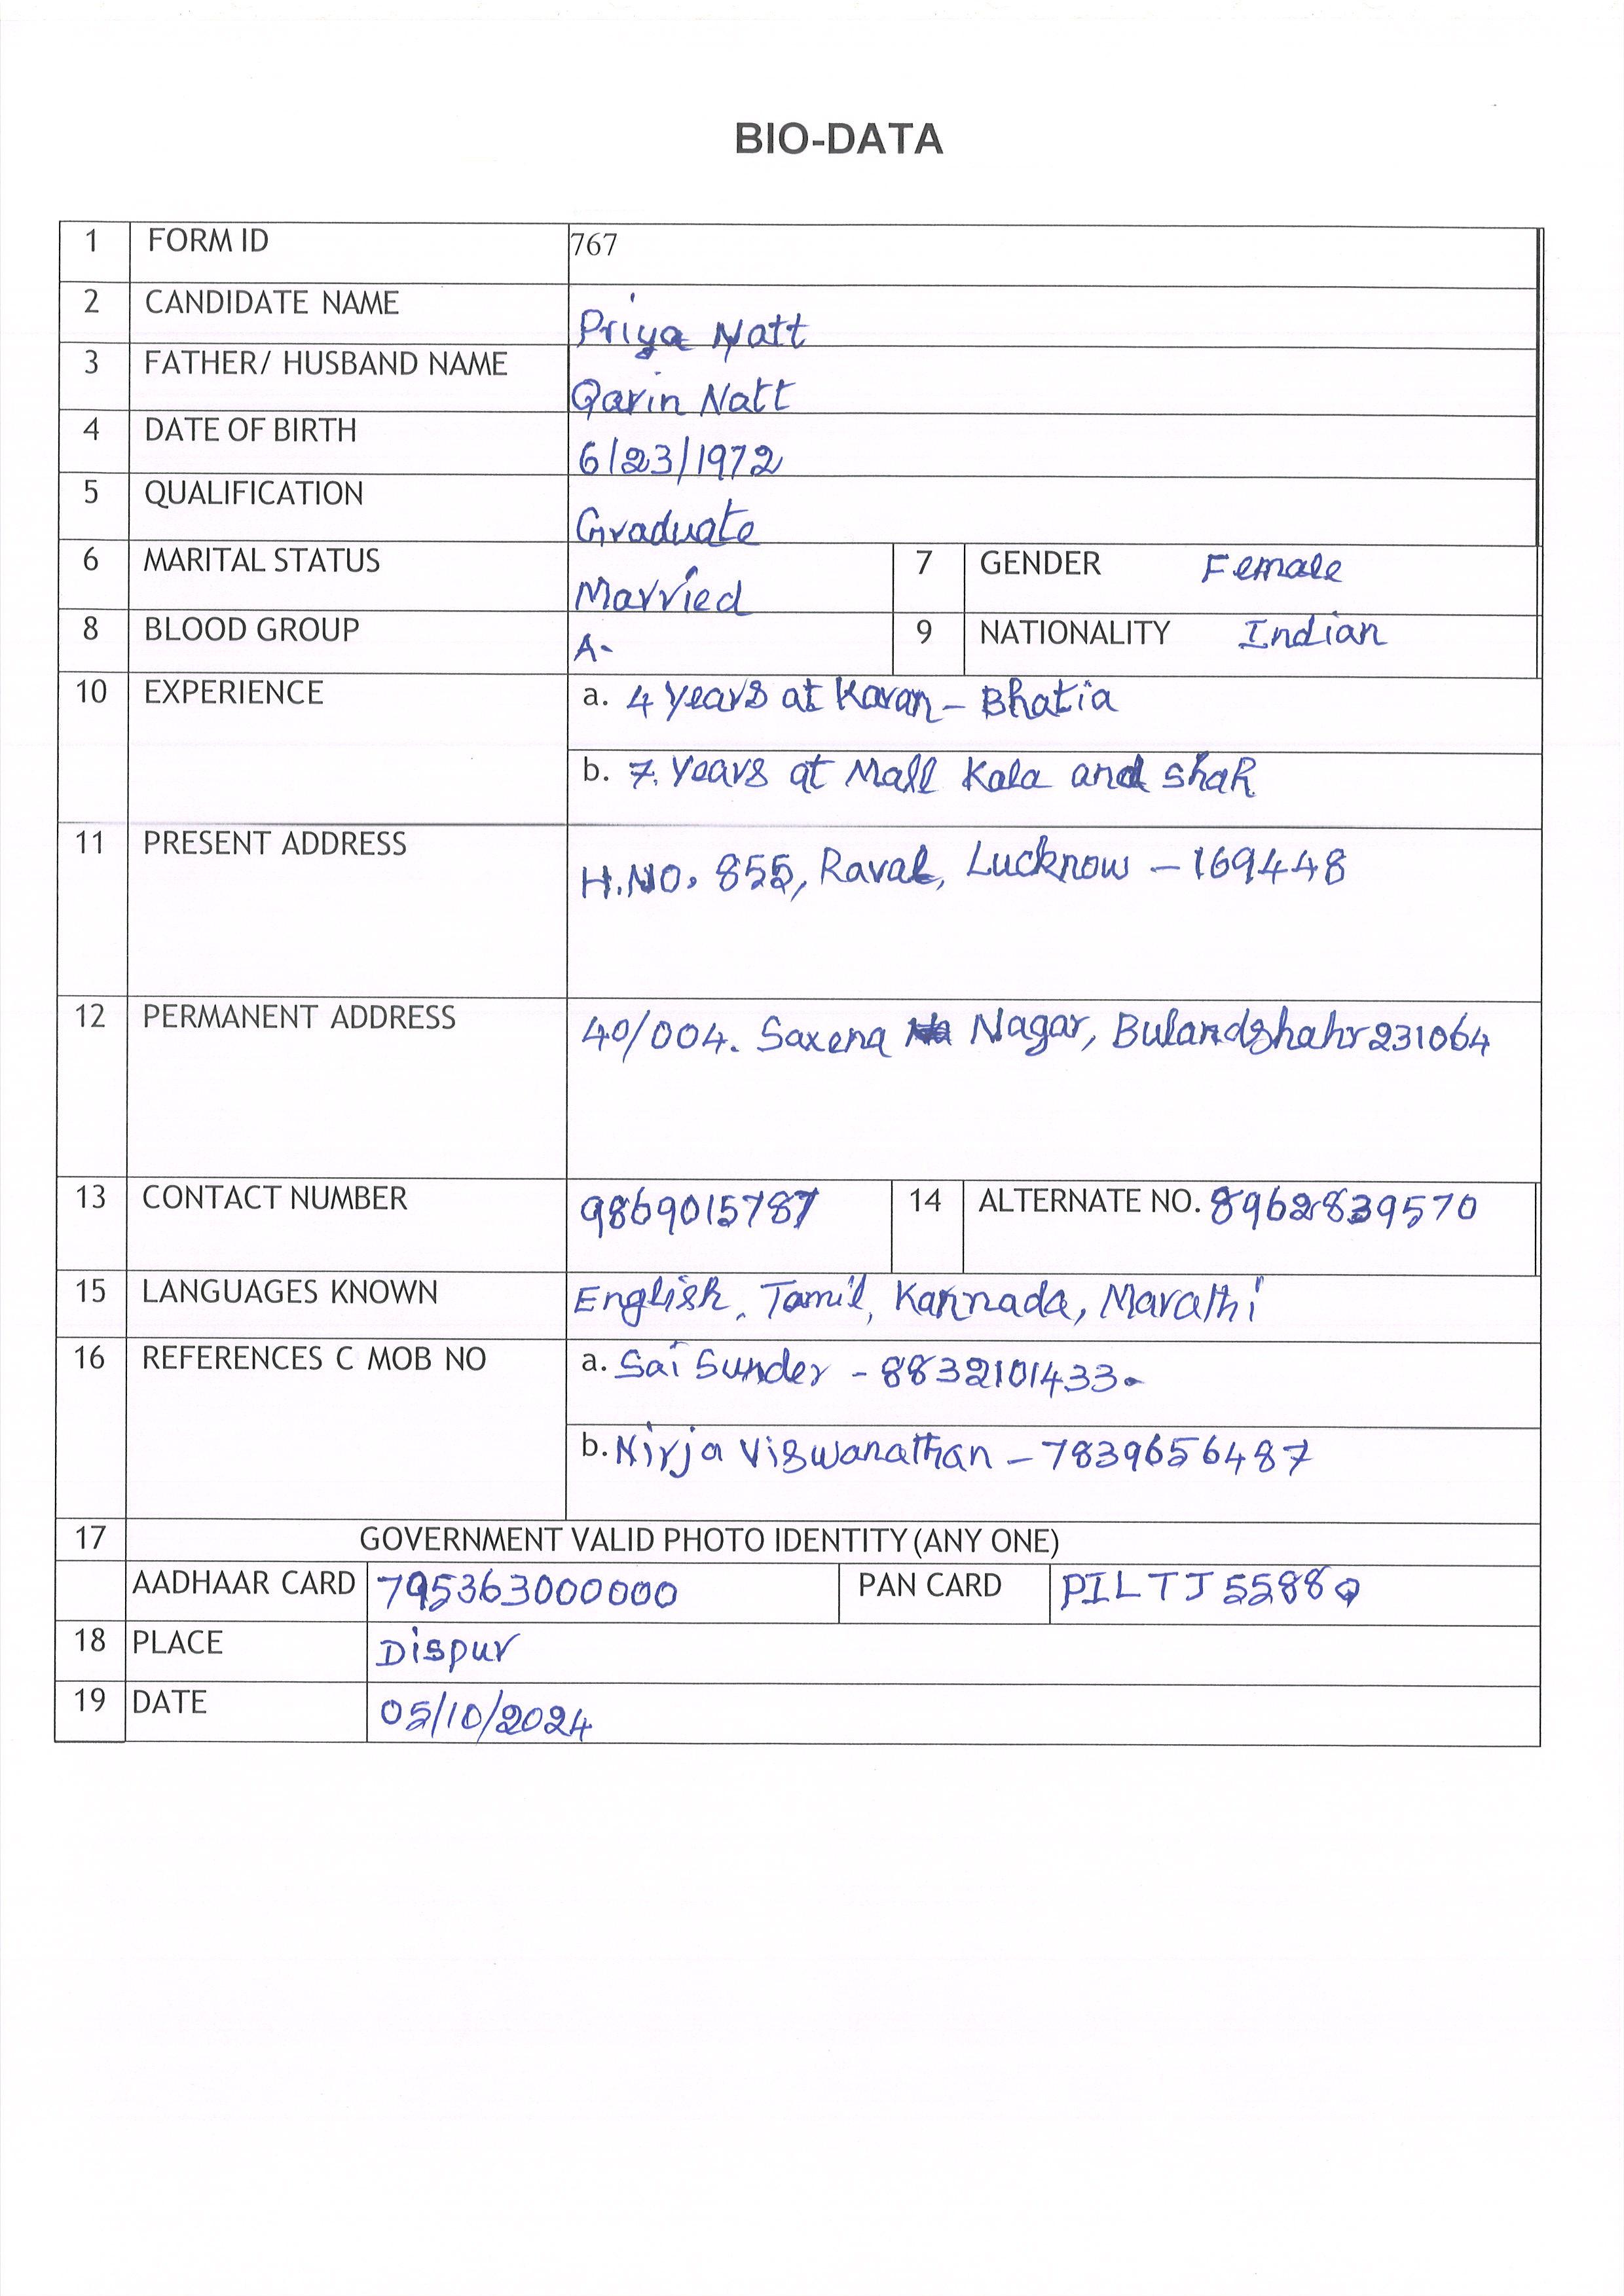 BIO-DATA
1 FORM ID 767
2 CANDIDATE NAME Priya Natt
3 FATHER/ HUSBAND NAME Qarin Natt
4 DATE OF BIRTH 6/23/1972
5 QUALIFICATION Graduate
6 MARITAL STATUS Married 7 GENDER Female
8 BLOOD GROUP A- 9 NATIONALITY Indian
10 EXPERIENCE a. 4 years at Karan - Bhatia
b. 7 Years at Mall Kala and Shah
11 PRESENT ADDRESS H.NO. 855, Raval, Lucknow - 169448
12 PERMANENT ADDRESS 40/004. Saxena Nagar, Bulandshahr 231064
13 CONTACT NUMBER 9869015787 14 ALTERNATE NO. 8962839570
15 LANGUAGES KNOWN English, Tamil, Kannada, Marathi
16 REFERENCES C MOB NO a. Sai Sunder - 8832101433
b. Nirja Viswanathan - 7839656487
17 GOVERNMENT VALID PHOTO IDENTITY (ANY ONE)
AADHAAR CARD 795363000000 PAN CARD PILTJ5588Q
18 PLACE Dispur
19 DATE 05/10/2024